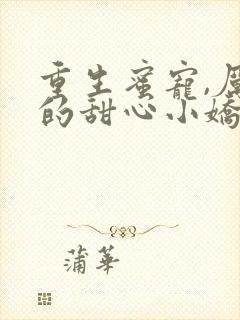 重生蜜寵,厲
的甜心小嬌
蒲華